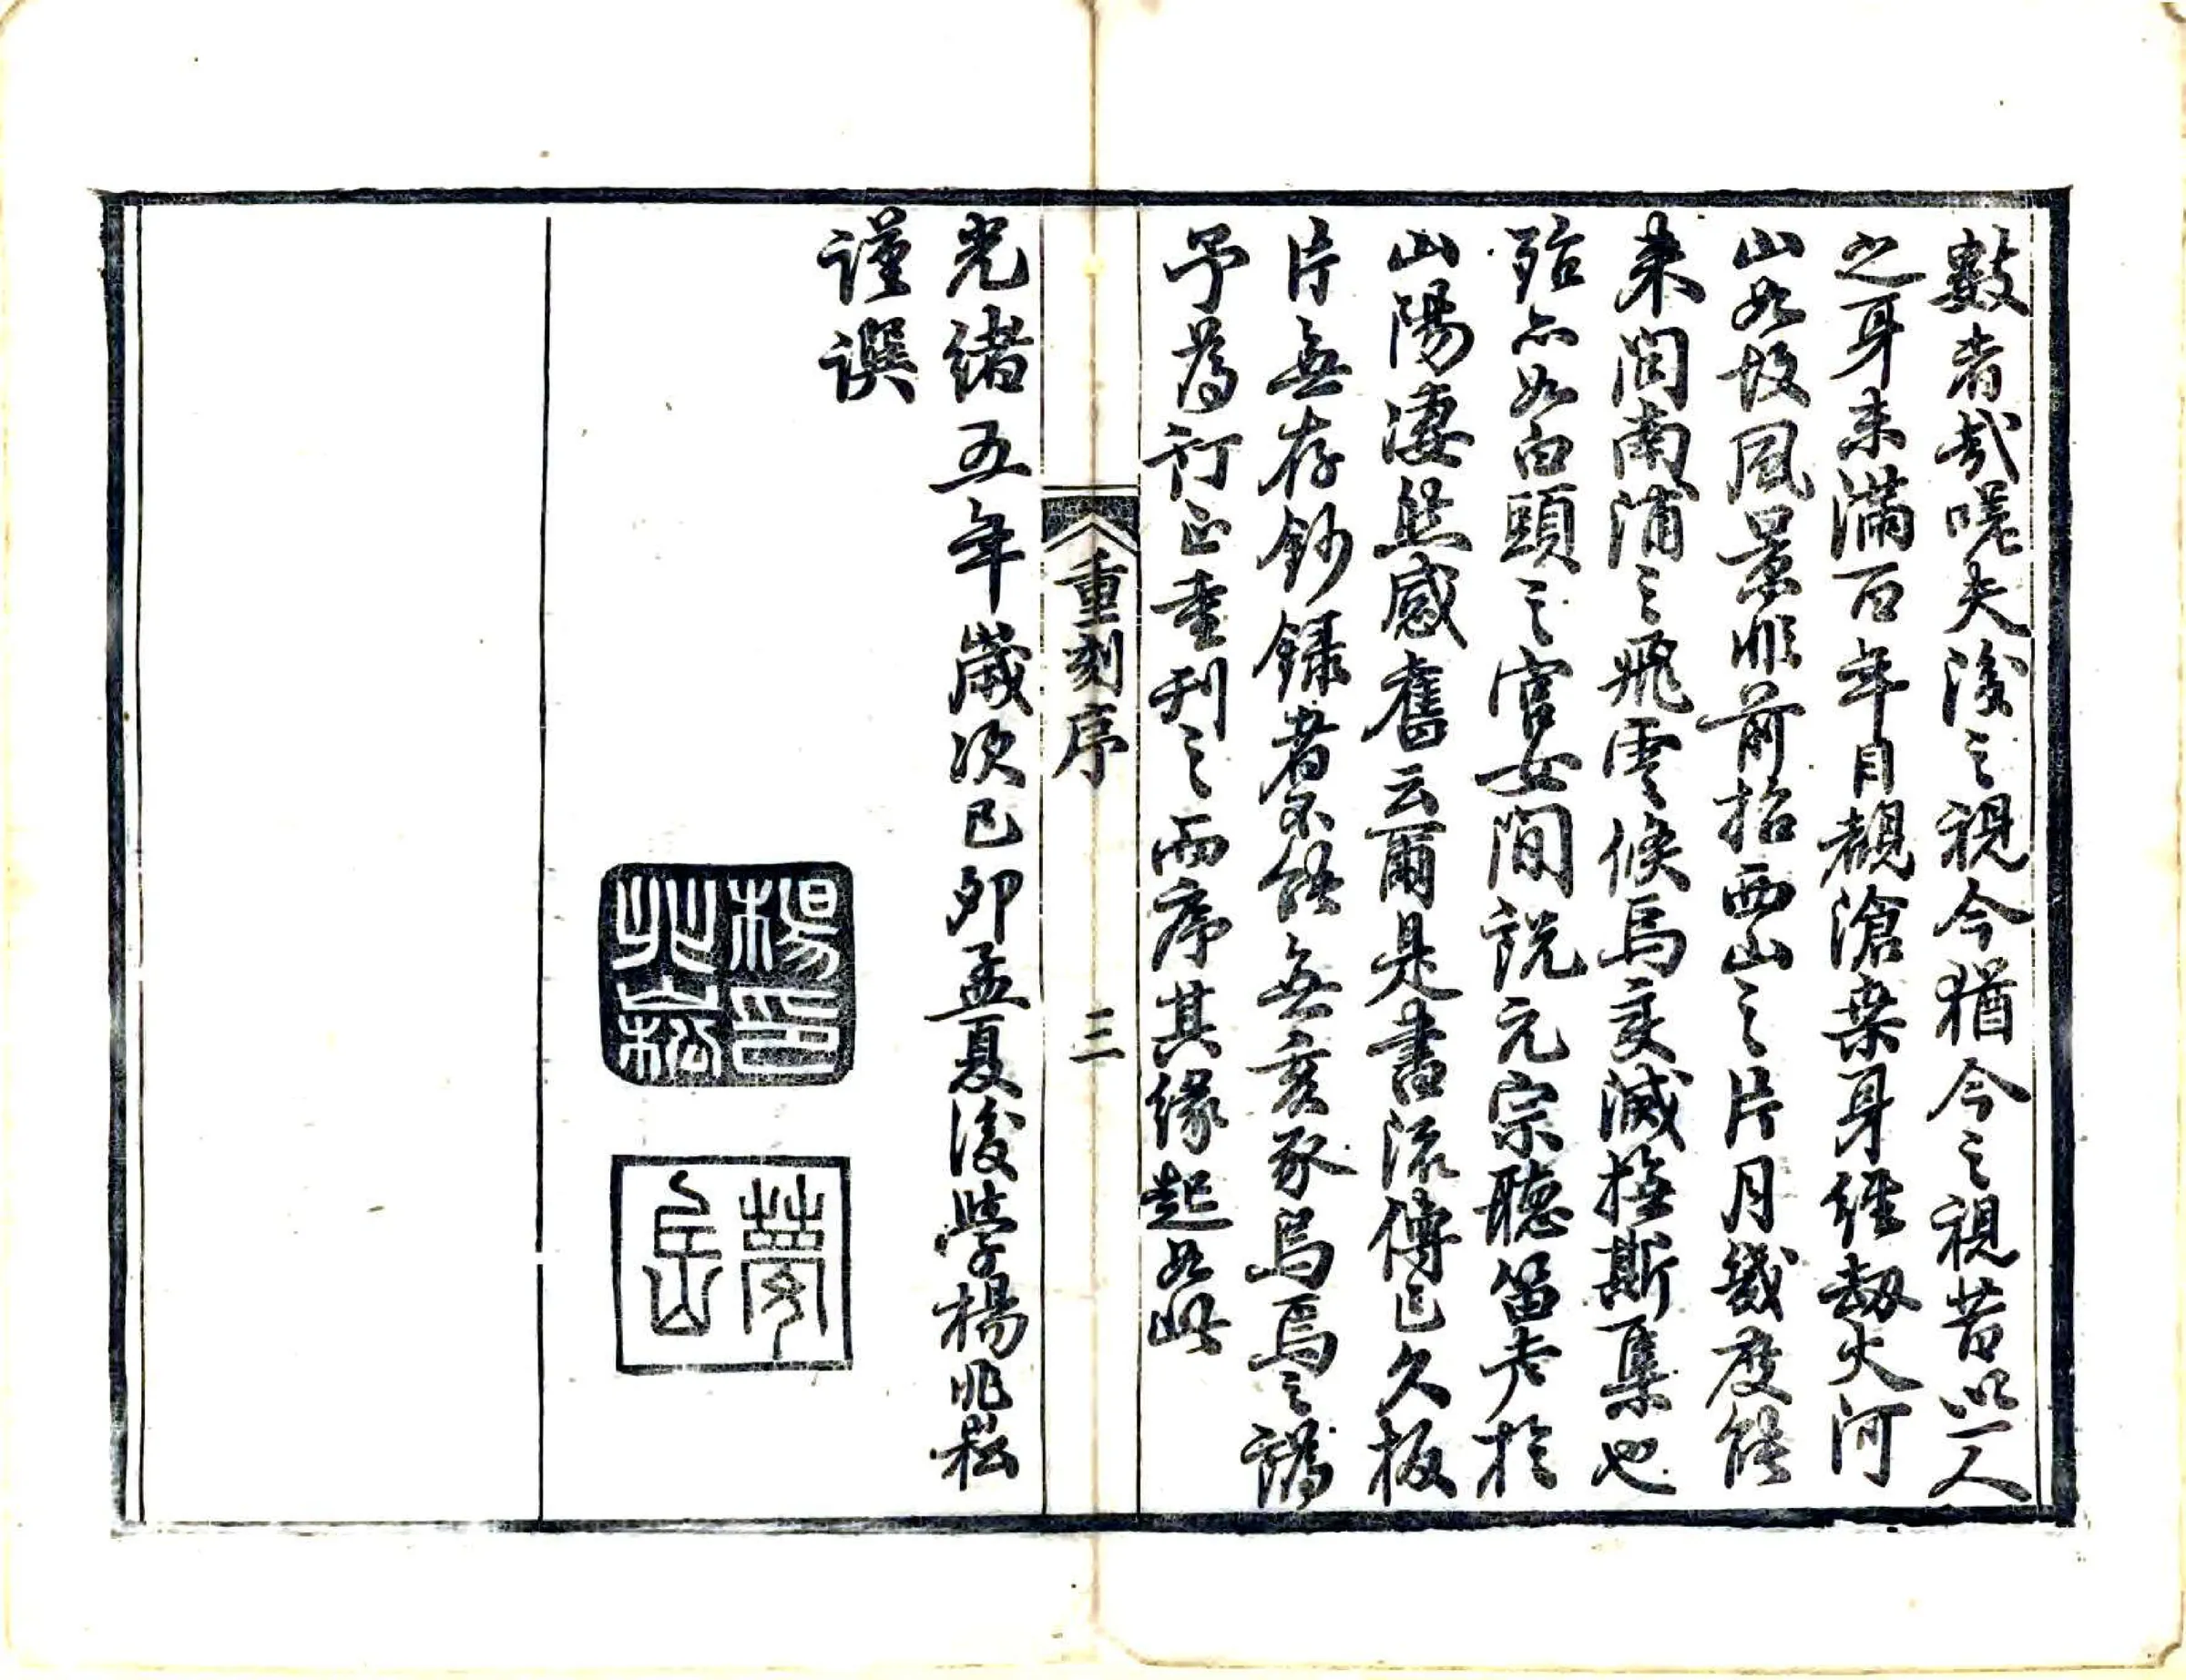 數者哉嗟夫後之視今猶今之視昔以一人
之身未滿百年目覩滄桒身經劫火河
山如故風景非前抬西山之片月幾度能
来问南浦之飛雲倏焉変滅撫斯集也
殆亦如白頭之宫女間説元宗聽笛步於
山陽凄然感舊云爾是書流傳已久板
片無存鈔録者不能無亥豕烏焉之譌
予為訂正重刊之而序其缘起如此
重刻序
三
光绪五年歲次己卯孟夏後學楊兆崧
謹譔
楊印兆崧
夢岳